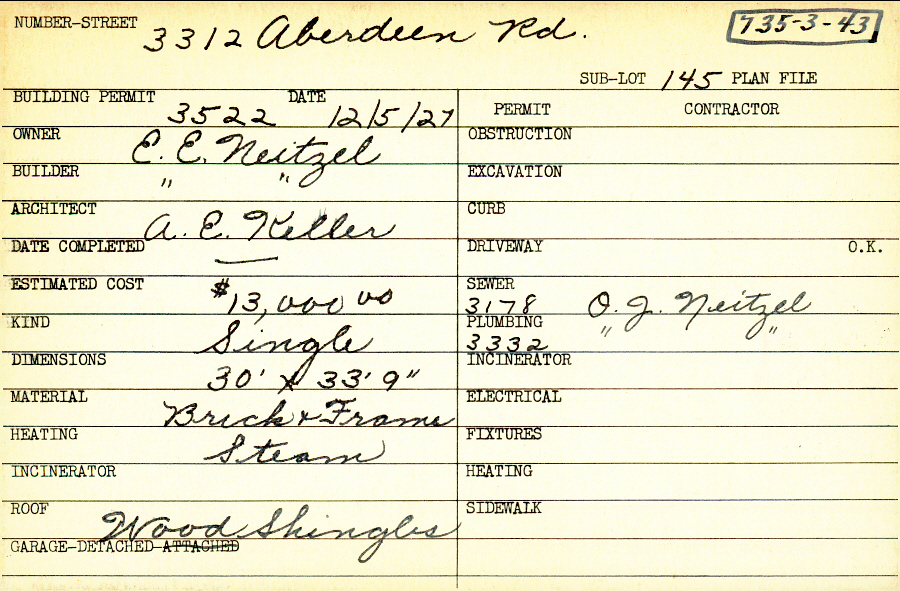 NUMBER-STREET 3312 Aberdeen Rd. 735-3-43
SUB-LOT 145 PLAN FILE
BUILDING PERMIT 3522 DATE 12/5/27 PERMIT CONTRACTOR
OWNER E. E. Neitzel OBSTRUCTION
BUILDER " " EXCAVATION
ARCHITECT A. E. Keller CURB
DATE COMPLETED — DRIVEWAY O.K.
ESTIMATED COST $13,000 00 SEWER 3178 O. J. Neitzel
KIND Single PLUMBING 3332 " "
DIMENSIONS 30' x 33' 9" INCINERATOR
MATERIAL Brick & Frame ELECTRICAL
HEATING Steam FIXTURES
INCINERATOR HEATING
ROOF Wood Shingles SIDEWALK
GARAGE-DETACHED-ATTACHED